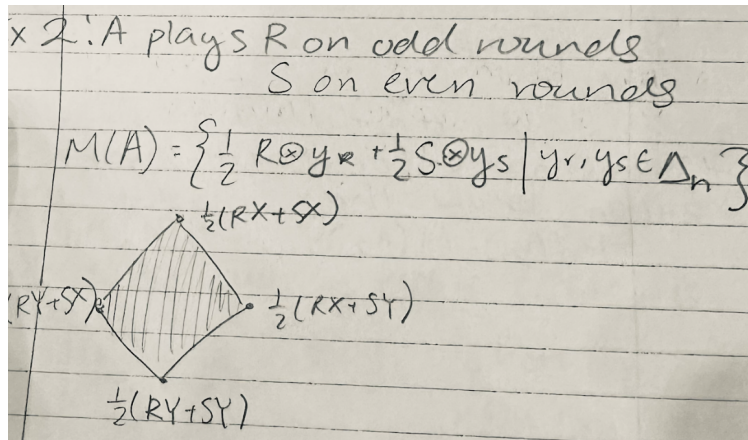 x 2: A plays R on odd rounds
S on even rounds
M(A) = { 1/2 R⊗y_R + 1/2 S⊗y_S | y_r, y_s ∈ Δ_n }
1/2(RX+SX)
(RY+SX)
1/2(RX+SY)
1/2(RY+SY)